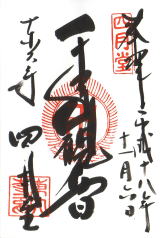 四月堂
奉拝 平成十八年
十一月六日
千手観音
東大寺 四月堂